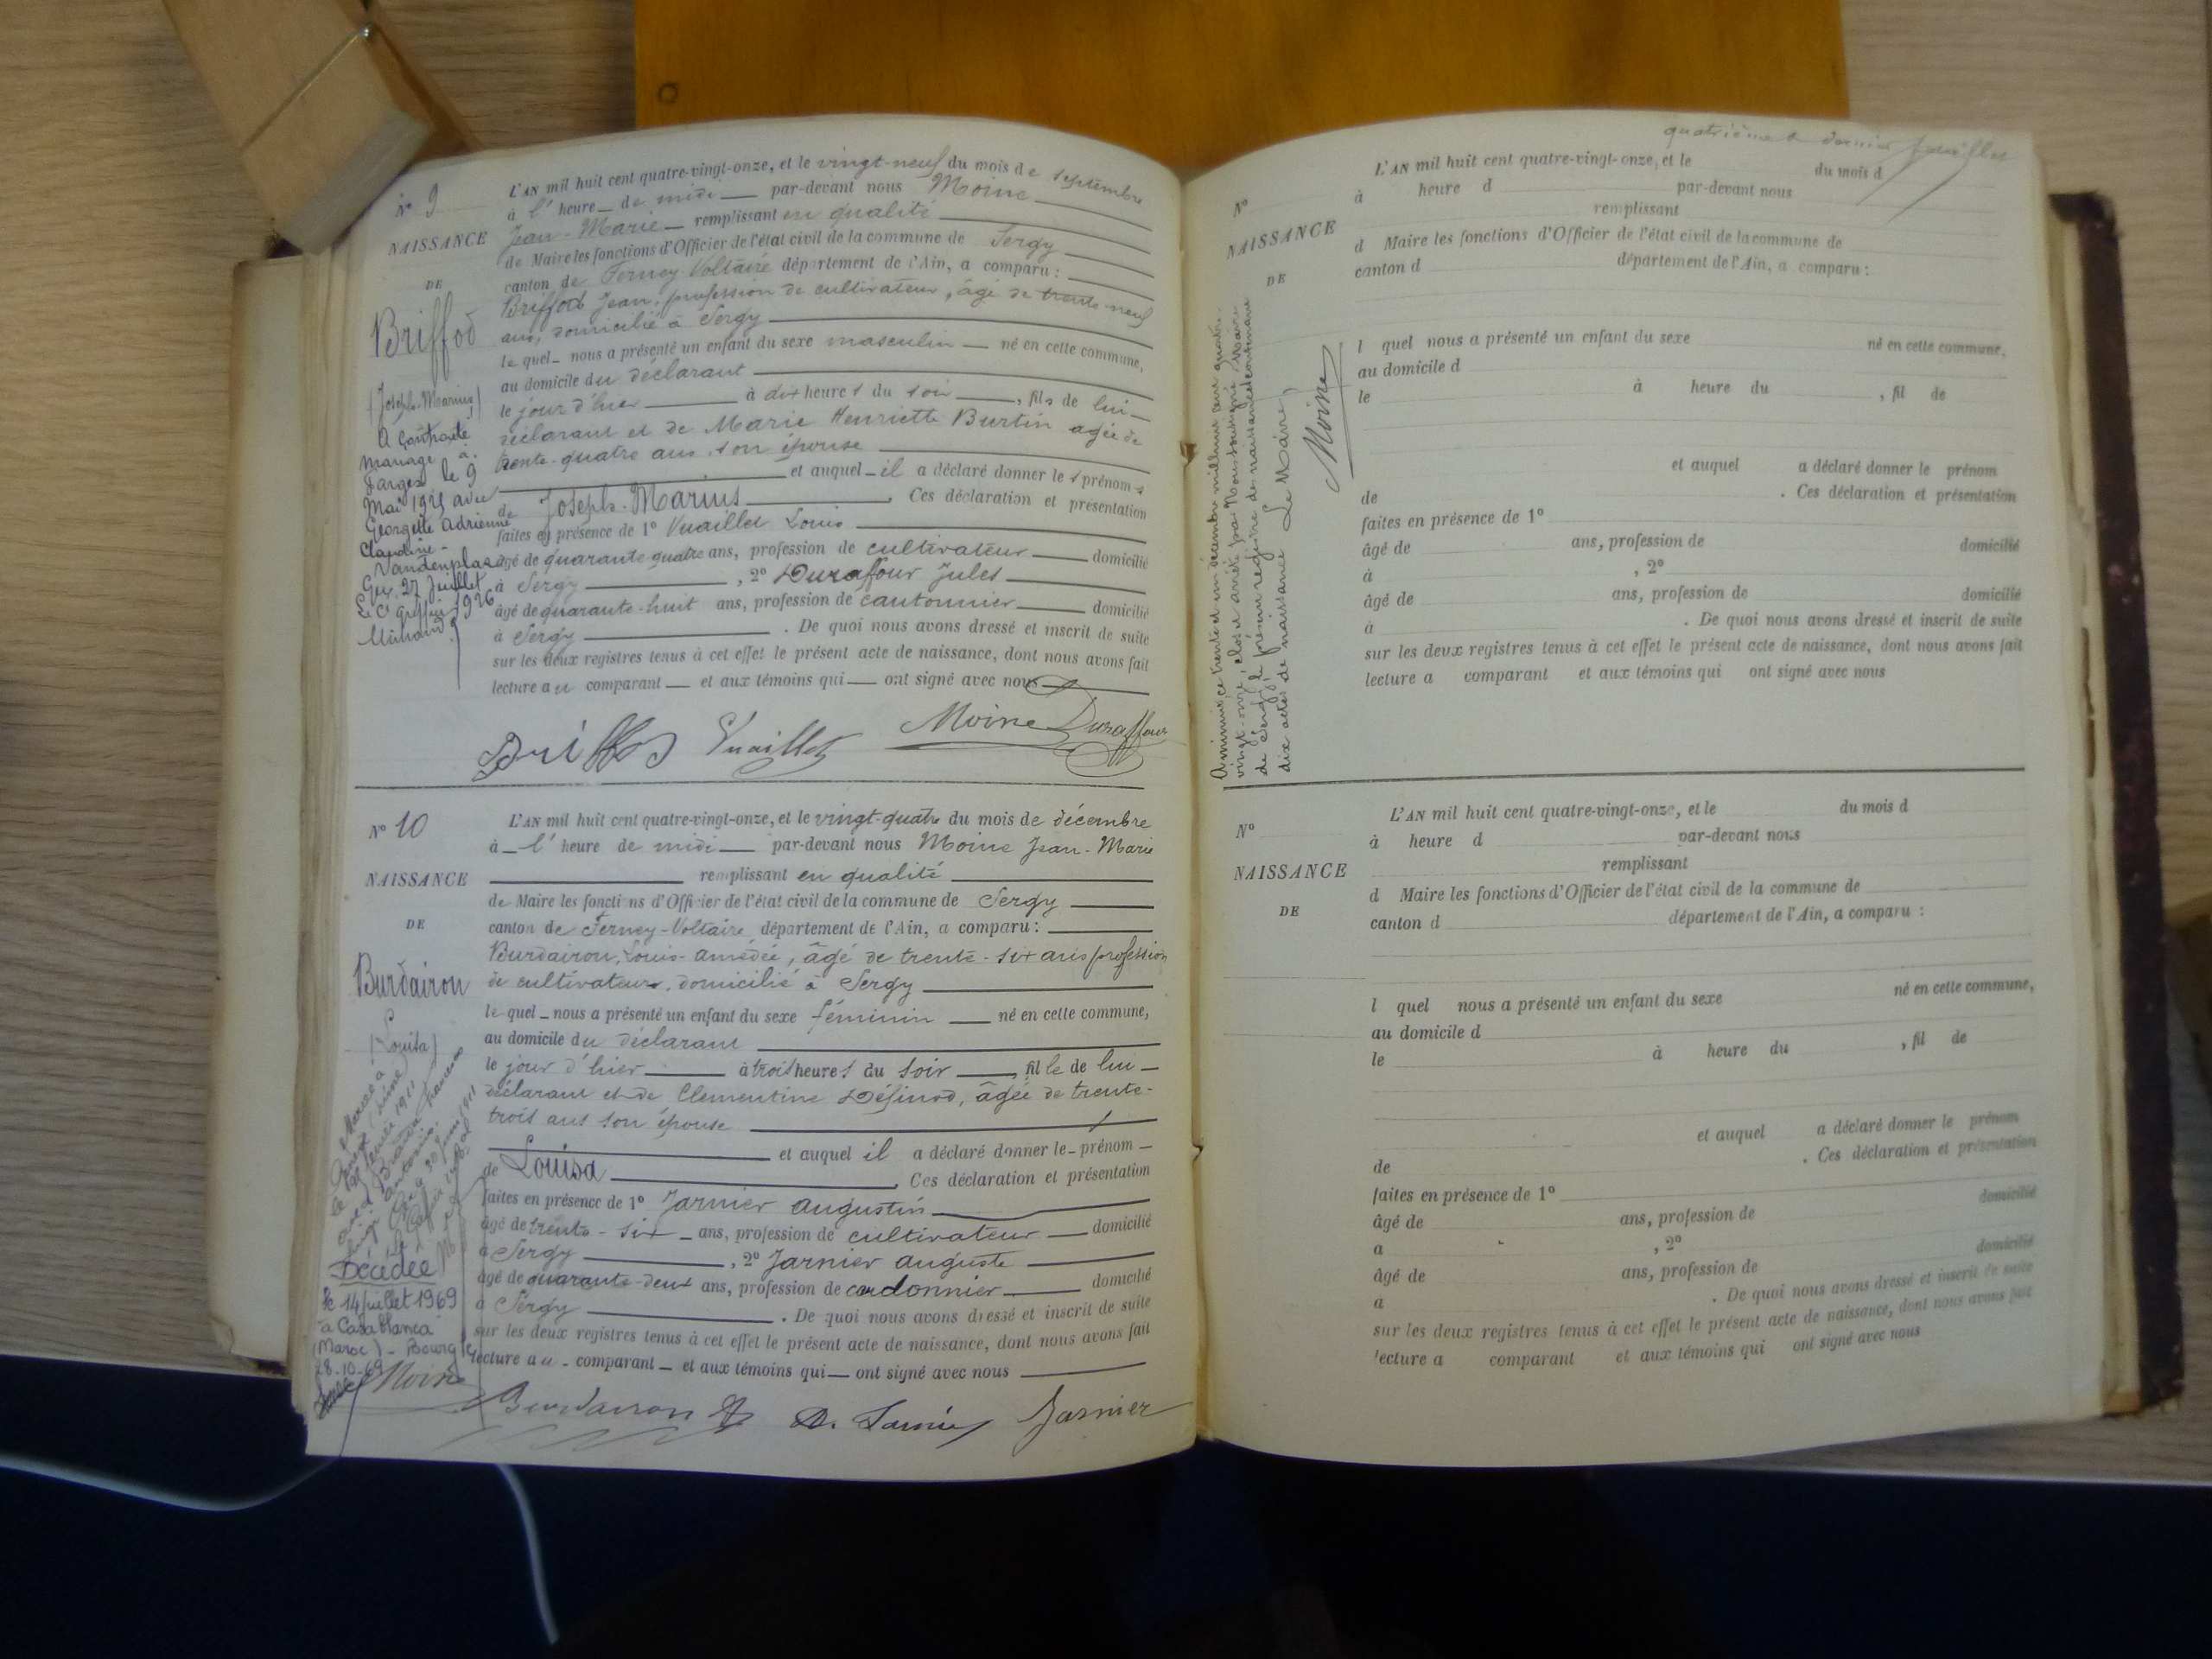 N° 9
NAISSANCE
DE
Briffod
(Joseph-Marius)
A contracté
mariage à
Farges le 9
Mai 1925 avec
Georgette Adrienne
Claudine
Vandenplas
Gex, 27 Juillet
1926
L'AN mil huit cent quatre-vingt-onze, et le vingt-neuf du mois de septembre
à l' heure de midi par-devant nous Moine
Jean-Marie remplissant en qualité
de Maire les fonctions d'Officier de l'état civil de la commune de Sergy
canton de Ferney-Voltaire département de l'Ain, a comparu :
Briffod Jean, profession de cultivateur, âgé de trente-neuf
ans, domicilié à Sergy
le quel nous a présenté un enfant du sexe masculin né en cette commune,
au domicile du déclarant
le jour d'hier à dix heures du soir, fils de lui
déclarant et de Marie Henriette Burtin agée de
trente-quatre ans, son épouse
et auquel il a déclaré donner les prénoms
de Joseph-Marius. Ces déclaration et présentation
faites en présence de 1° Vuaillet Louis
âgé de quarante quatre ans, profession de cultivateur domicilié
à Sergy, 2° Durafour Jules
âgé de quarante-huit ans, profession de cantonnier domicilié
à Sergy. De quoi nous avons dressé et inscrit de suite
sur les deux registres tenus à cet effet le présent acte de naissance, dont nous avons fait
lecture au comparant et aux témoins qui ont signé avec nous
Briffod Vuaillet Moine Duraffour
N° 10
NAISSANCE
DE
Burdairon
(Louisa)
Décédée
le 14 juillet 1969
à Casablanca
(Maroc) - Bourg le
28-10-69
L'AN mil huit cent quatre-vingt-onze, et le vingt-quatre du mois de décembre
à l' heure de midi par-devant nous Moine Jean-Marie
remplissant en qualité
de Maire les fonctions d'Officier de l'état civil de la commune de Sergy
canton de Ferney-Voltaire département de l'Ain, a comparu :
Burdairon, Louis-amédée, âgé de trente-six ans profession
de cultivateur, domicilié à Sergy
le quel nous a présenté un enfant du sexe féminin né en cette commune,
au domicile du déclarant
le jour d'hier à trois heures du soir, fille de lui
déclarant et de Clementine Déjinod, âgée de trente-
trois ans son épouse
et auquel il a déclaré donner le prénom
de Louisa. Ces déclaration et présentation
faites en présence de 1° Jarnier augustin
âgé de trente-six ans, profession de cultivateur domicilié
à Sergy, 2° Jarnier auguste
âgé de quarante-deux ans, profession de cordonnier domicilié
à Sergy. De quoi nous avons dressé et inscrit de suite
sur les deux registres tenus à cet effet le présent acte de naissance, dont nous avons fait
lecture au comparant et aux témoins qui ont signé avec nous
Moine Burdairon Jarnier
quatrième et dernier feuillet
A minuit, ce trente et un décembre mil huit cent quatre-
vingt-onze, clos et arrêté par Nous soussigné, Maire
de Sergy, le présent registre de naissance contenant
dix actes de naissance Le Maire,
Moine
N°
NAISSANCE
DE
L'AN mil huit cent quatre-vingt-onze, et le du mois d
à heure d par-devant nous
remplissant
d Maire les fonctions d'Officier de l'état civil de la commune de
canton d département de l'Ain, a comparu :
l quel nous a présenté un enfant du sexe né en cette commune,
au domicile d
le à heure du , fil de
et auquel a déclaré donner le prénom
de . Ces déclaration et présentation
faites en présence de 1°
âgé de ans, profession de domicilié
à , 2°
âgé de ans, profession de domicilié
à . De quoi nous avons dressé et inscrit de suite
sur les deux registres tenus à cet effet le présent acte de naissance, dont nous avons fait
lecture a comparant et aux témoins qui ont signé avec nous
N°
NAISSANCE
DE
L'AN mil huit cent quatre-vingt-onze, et le du mois d
à heure d par-devant nous
remplissant
d Maire les fonctions d'Officier de l'état civil de la commune de
canton d département de l'Ain, a comparu :
l quel nous a présenté un enfant du sexe né en cette commune,
au domicile d
le à heure du , fil de
et auquel a déclaré donner le prénom
de . Ces déclaration et présentation
faites en présence de 1°
âgé de ans, profession de domicilié
à , 2°
âgé de ans, profession de domicilié
à . De quoi nous avons dressé et inscrit de suite
sur les deux registres tenus à cet effet le présent acte de naissance, dont nous avons fait
lecture a comparant et aux témoins qui ont signé avec nous